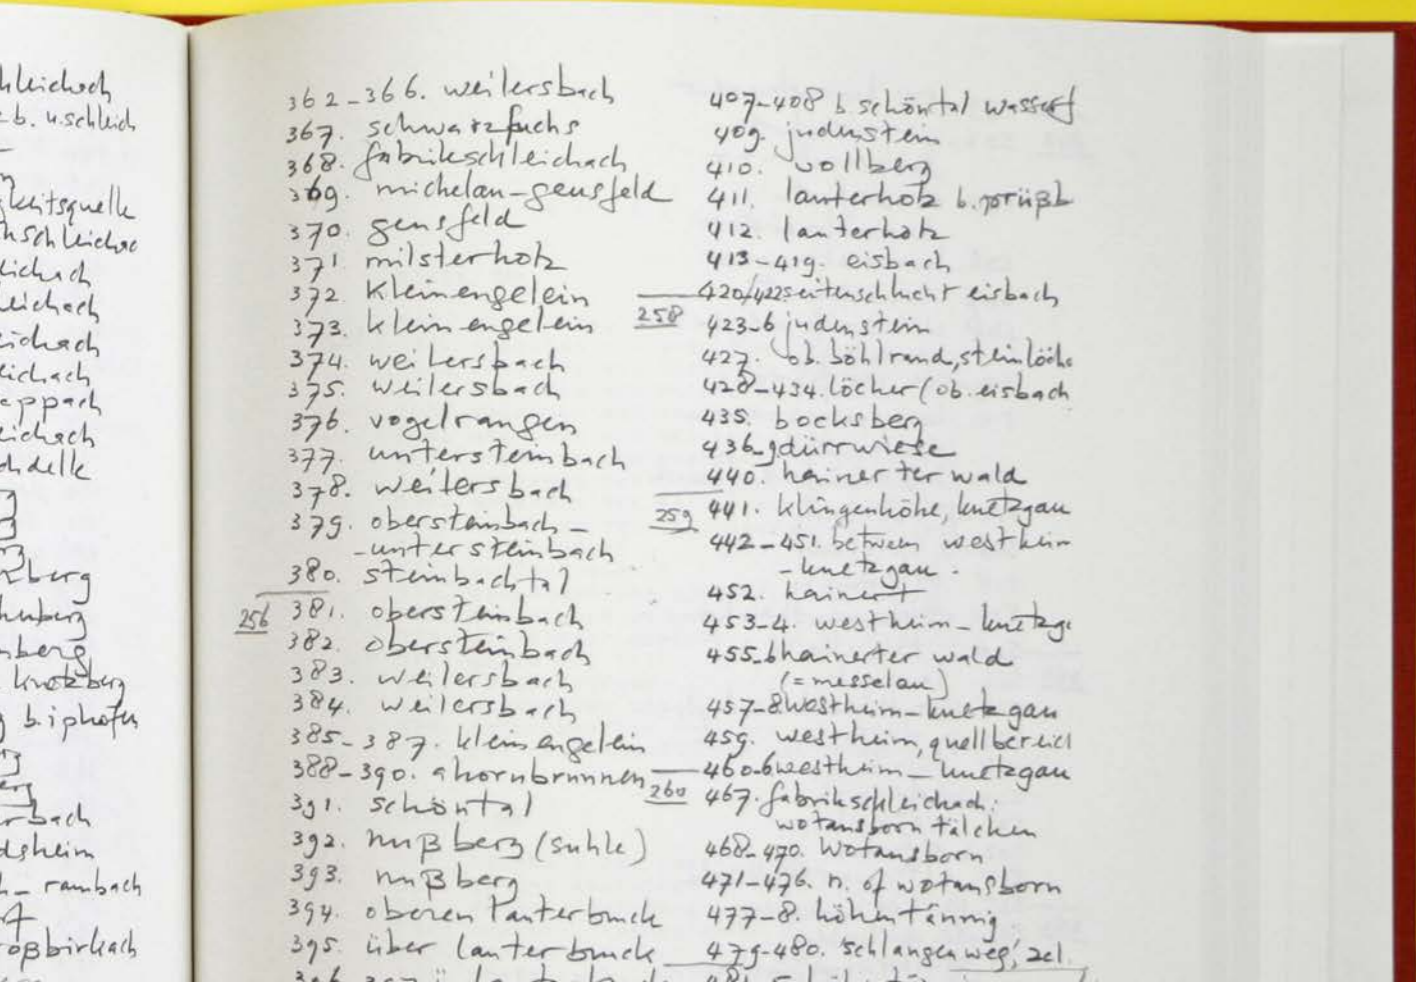 hleichach
b. u. schleich
keitsquelle
hschleichac
eichach
leichach
eichach
eichach
eppach
eichach
chdelle
berg
berg
knetzberg
b. iphofen
bach
dsheim
h - rambach
oßbirkach
362-366. weilersbach
367. schwarzfuchs
368. fabrikschleichach
369. michelau-gensfeld
370. gensfeld
371 milsterholz
372. kleinengelein
373. kleinengelein
374. weilersbach
375. weilersbach
376. vogelrangen
377. untersteinbach
378. weilersbach
379. obersteinbach -
-untersteinbach
380. steinbachtal
256 381. obersteinbach
382. obersteinbach
383. weilersbach
384. weilersbach
385-387. kleinengelein
388-390. ahornbrunnen
391. schöntal
392. nußberg (suhle)
393. nußberg
394. oberen lauterbuck
395. über lauterbuck
407-408 b schöntal wasserf
409. judenstein
410. vollberg
411. lauterholz b. prüßb
412. lauterholz
413-419. eisbach
420/422 seitenschlucht eisbach
258 423-6 judenstein
427. ob. böhlrand, steinlöche
428-434. löcher (ob. eisbach
435. bocksberg
436-9 dürrwiese
440. hainerter wald
259 441. klingenhöhe, knetzgau
442-451. between westheim
-knetzgau.
452. hainert
453-4. westheim-knetzga
455-6 hainerter wald
(=messelau)
457-8 westheim-knetzgau
459. westheim, quellbereich
460-6 westheim-knetzgau
260 467. fabrikschleichach:
wotansborn tälchen
468-470. wotansborn
471-476. n. of wotansborn
477-8. höhentännig
479-480. 'schlangenweg', zel